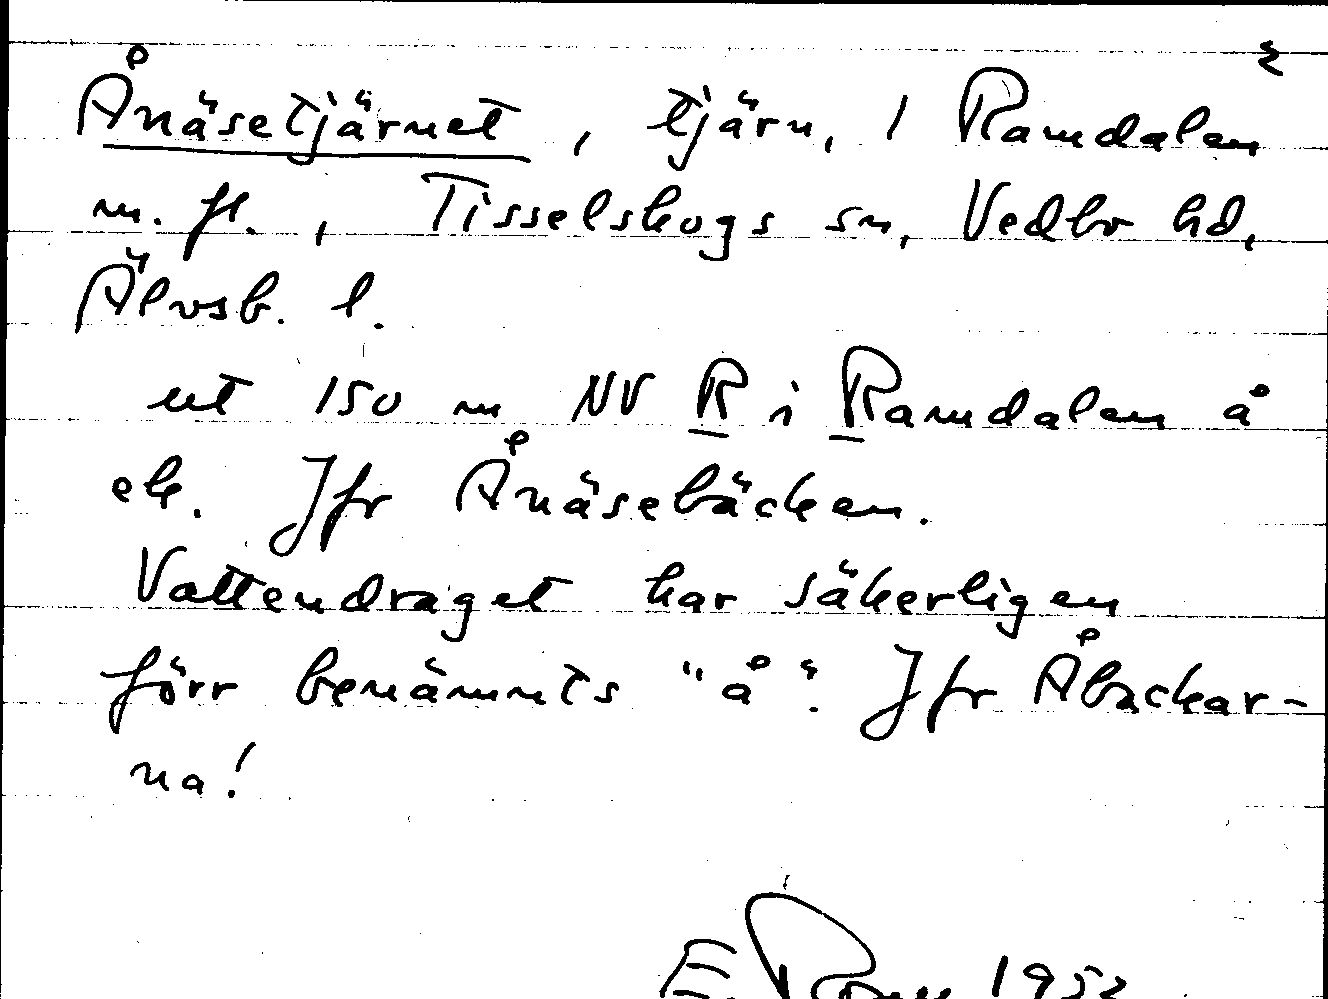 2
Ånäsetjärnet, tjärn, 1 Ramdalen
m. fl., Tisselskogs sn, Vedbo hd,
Älvsb. l.
ut 150 m NV R i Ramdalen å
ek. Jfr Ånäsebäcken.
Vattendraget har säkerligen
förr benämnts "å". Jfr Åbackar-
na!
E. 1952